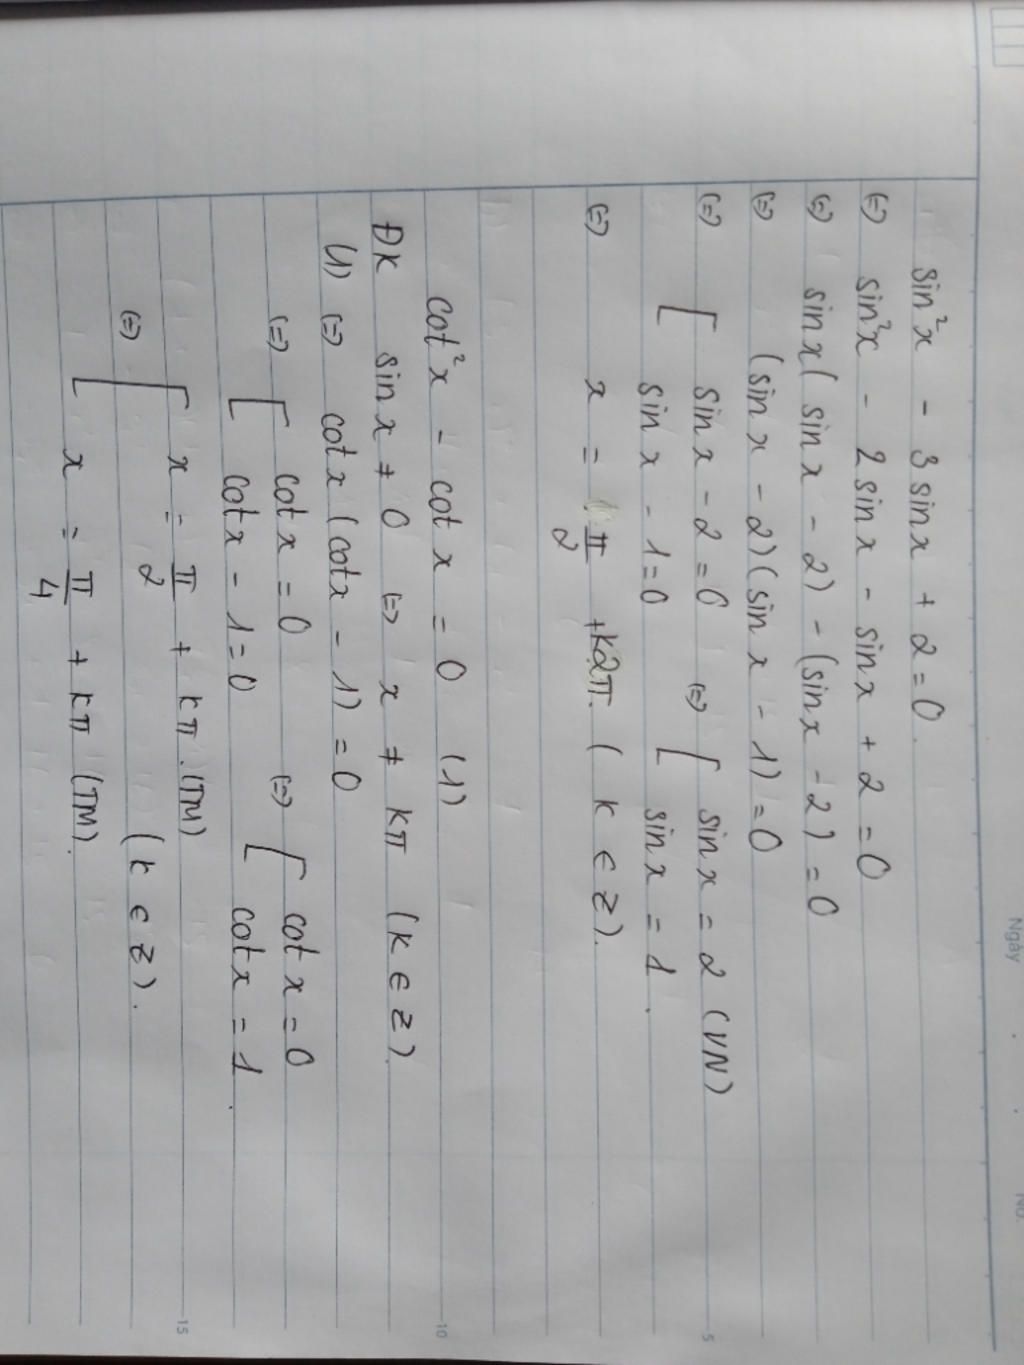 Ngày
No.
sin²x - 3 sinx + 2 = 0.
(=) sin²x - 2 sinx - sinx + 2 = 0
(=) sinx ( sinx - 2) - (sinx - 2) = 0
(=) (sinx - 2)(sinx - 1) = 0
(=) [ sinx - 2 = 0 (=) [ sinx = 2 (VN)
sinx - 1 = 0 sinx = 1.
(=) x = π/2 + k2π. ( k ∈ Z).
cot²x - cotx = 0 (1)
ĐK sinx ≠ 0 (=) x ≠ kπ (k ∈ Z).
(1) (=) cotx (cotx - 1) = 0
(=) [ cotx = 0 (=) [ cotx = 0
cotx - 1 = 0 cotx = 1.
(=) [ x = π/2 + kπ. (TM)
(k ∈ Z).
x = π/4 + kπ (TM).
5
10
15